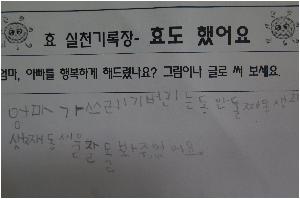 효 실천기록장- 효도 했어요
엄마, 아빠를 행복하게 해드렸나요? 그림이나 글로 써 보세요.
엄마가 쓰레기 버리는 동안 둘째동생과
셋째동생을 잘 돌봐주었어요.